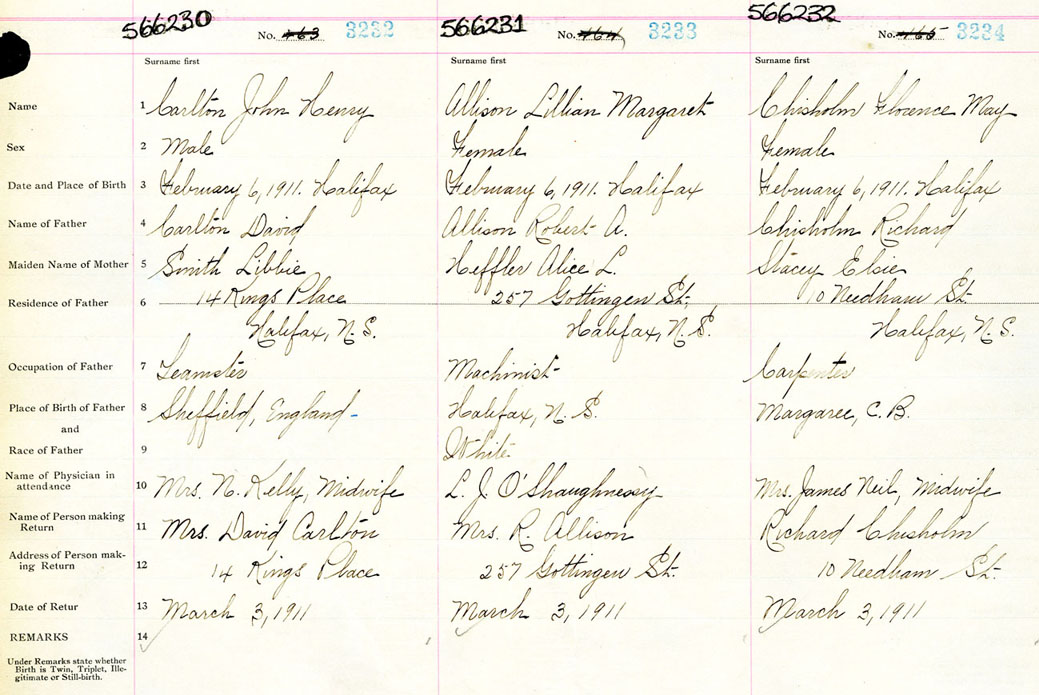 566230 No. 463 3232 566231 No. 464 3233 566232 No. 465 3234
Surname first Surname first Surname first
Name 1 Carlton John Henry Allison Lillian Margaret Chisholm Florence May
Sex 2 Male Female Female
Date and Place of Birth 3 February 6, 1911. Halifax February 6, 1911. Halifax February 6, 1911. Halifax
Name of Father 4 Carlton David Allison Robert A. Chisholm Richard
Maiden Name of Mother 5 Smith Libbie Heffler Alice L. Stacey Elsie
Residence of Father 6 14 Kings Place 257 Gottingen St. 10 Needham St.
Halifax, N.S. Halifax, N.S. Halifax, N.S.
Occupation of Father 7 Teamster Machinist Carpenter
Place of Birth of Father 8 Sheffield, England Halifax, N.S. Margaree, C.B.
and
Race of Father 9 White
Name of Physician in
attendance 10 Mrs. N. Kelly, Midwife L. J. O'Shaughnessy Mrs. James Neil, Midwife
Name of Person making
Return 11 Mrs. David Carlton Mrs. R. Allison Richard Chisholm
Address of Person mak-
ing Return 12 14 Kings Place 257 Gottingen St. 10 Needham St.
Date of Retur 13 March 3, 1911 March 3, 1911 March 3, 1911
REMARKS 14
Under Remarks state whether
Birth is Twin, Triplet, Ille-
gitimate or Still-birth.